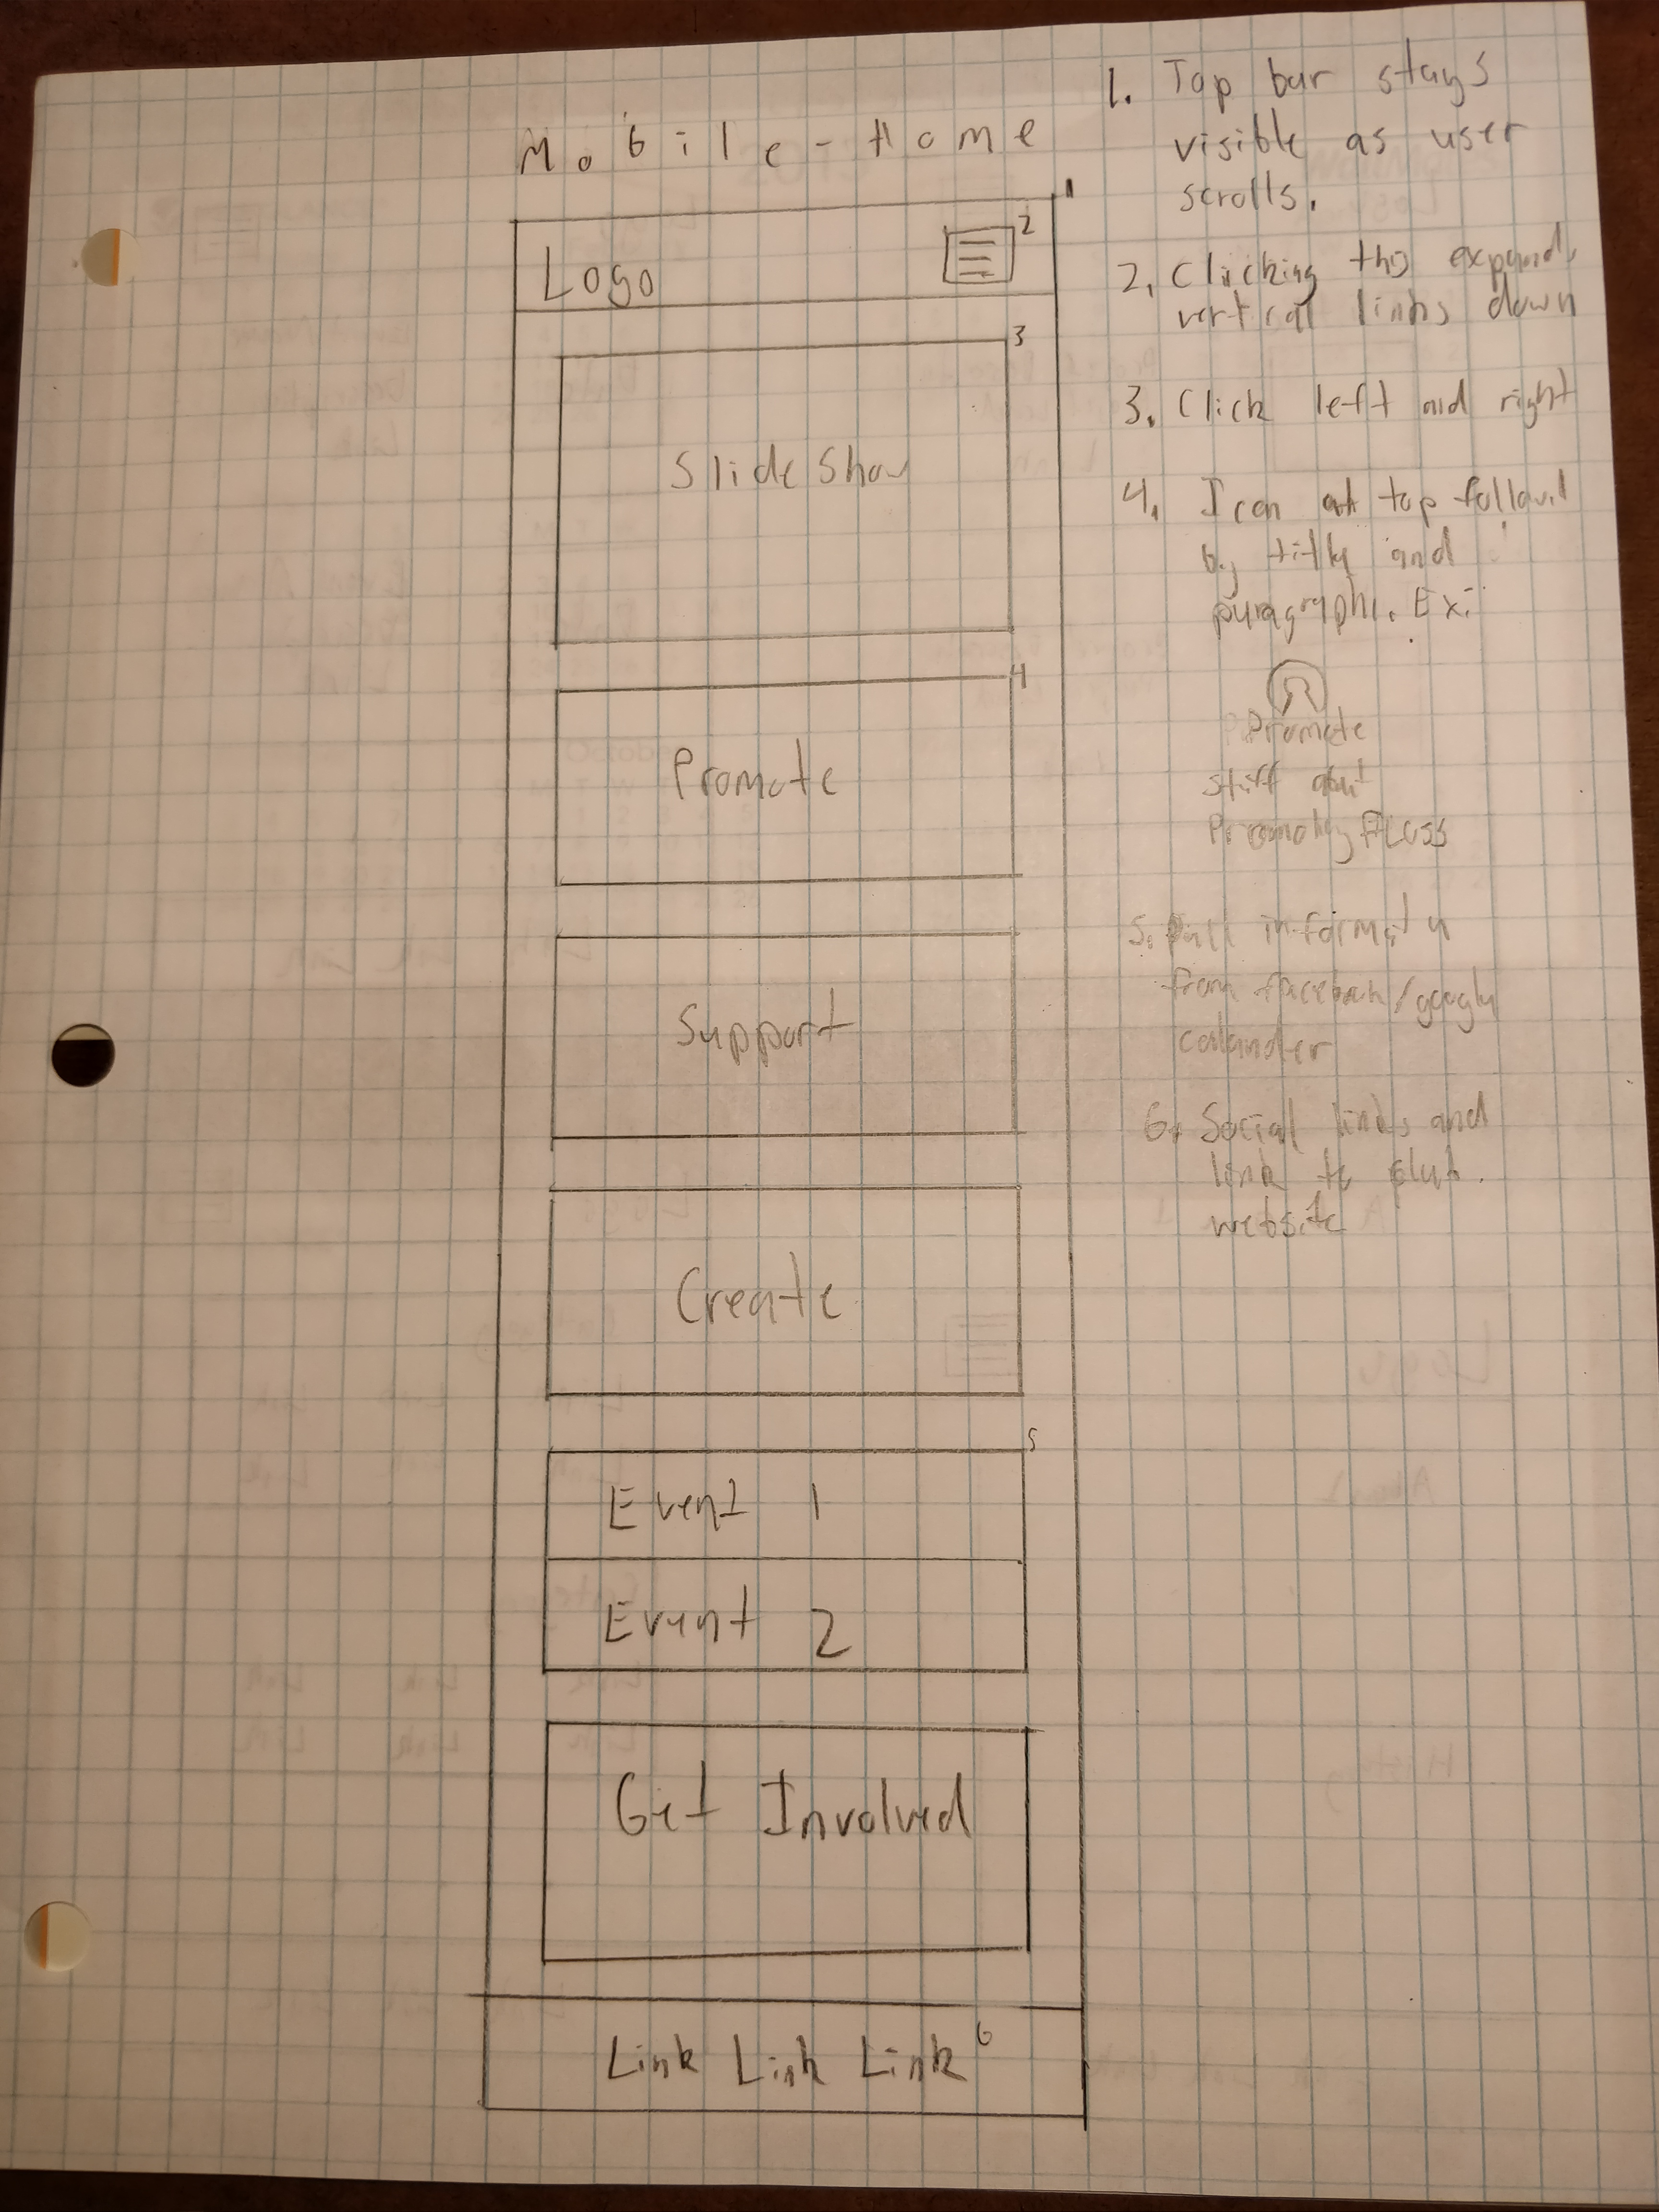 Mobile-Home
1
Logo
2
3
Slide Show
4
Promote
Support
Create
5
Event 1
Event 2
Get Involved
Link Link Link 6
1. Top bar stays
visible as user
scrolls.
2. Clicking this expands
vertical links down
3. Click left and right
4. Icon at top followed
by title and
paragraph. Ex:
Promote
stuff about
Promoting FLOSS
5. Pull
from facebook/google
calander
6. Social links and
link to club
website